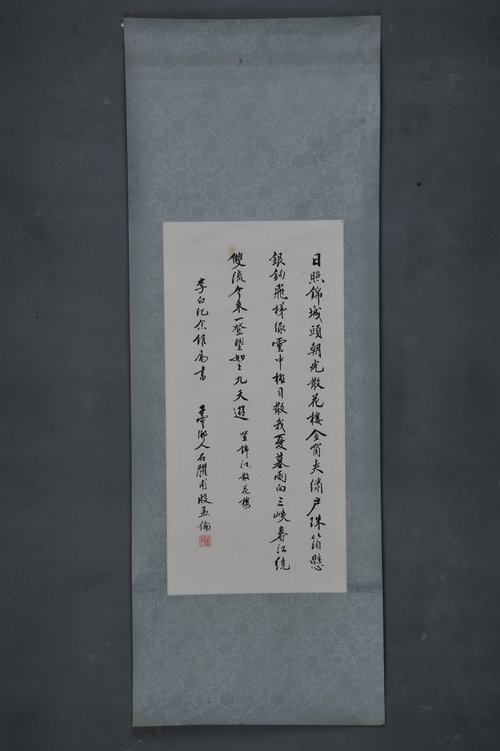 日照錦城頭朝光散花樓金窗夾繡戶珠箔懸
銀鈎飛梯綠雲中極目散我憂暮雨向三峡春江绕
雙流今來一登望如上九天遊 登錦江散花樓
李白纪念館属書 子雲鄉人石臞甫孟倫